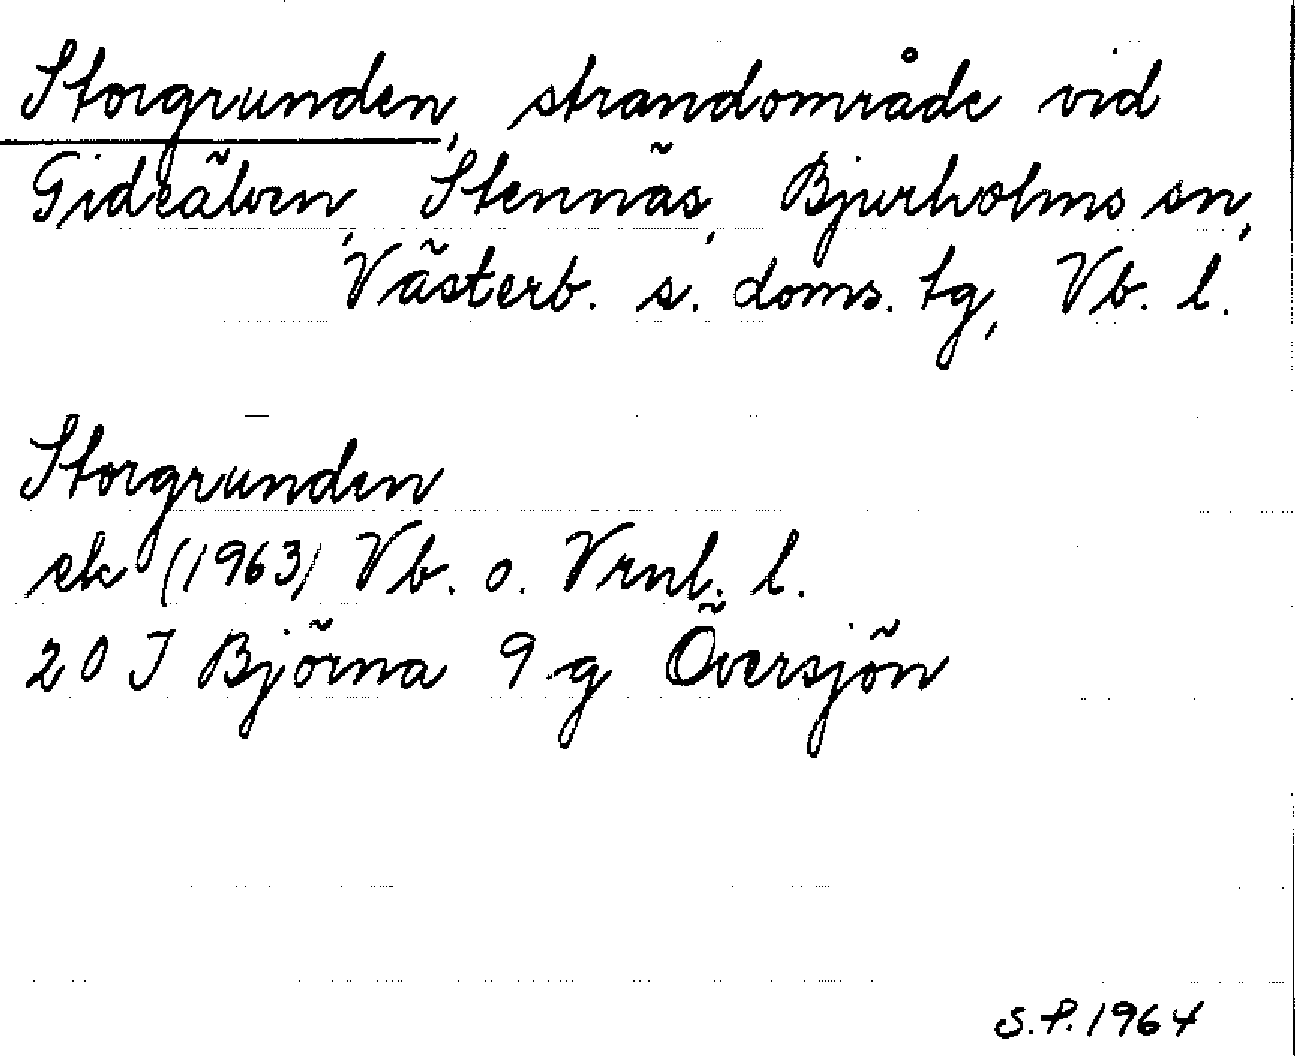 Storgrunden, strandområde vid
Gideälven, Stennäs, Bjurholms sn,
Västerb. s. doms. tg, Vb. l.
Storgrunden
ek (1963) Vb. o. Vrnl. l.
20 J Björna 9 g Översjön
S.P. 1964